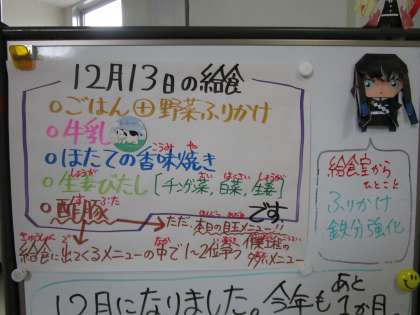 12月13日の給食
○ごはん ⊕ 野菜ふりかけ
○牛乳
○ほたての香味焼き
○生姜びたし [チンゲン菜、白菜、生姜]
○酢豚
です。
給食に出てくるメニューの中で1〜2位争う
給食室から
ひとこと
ふりかけ
鉄分強化
12月になりました。今年も
あと
1か月。